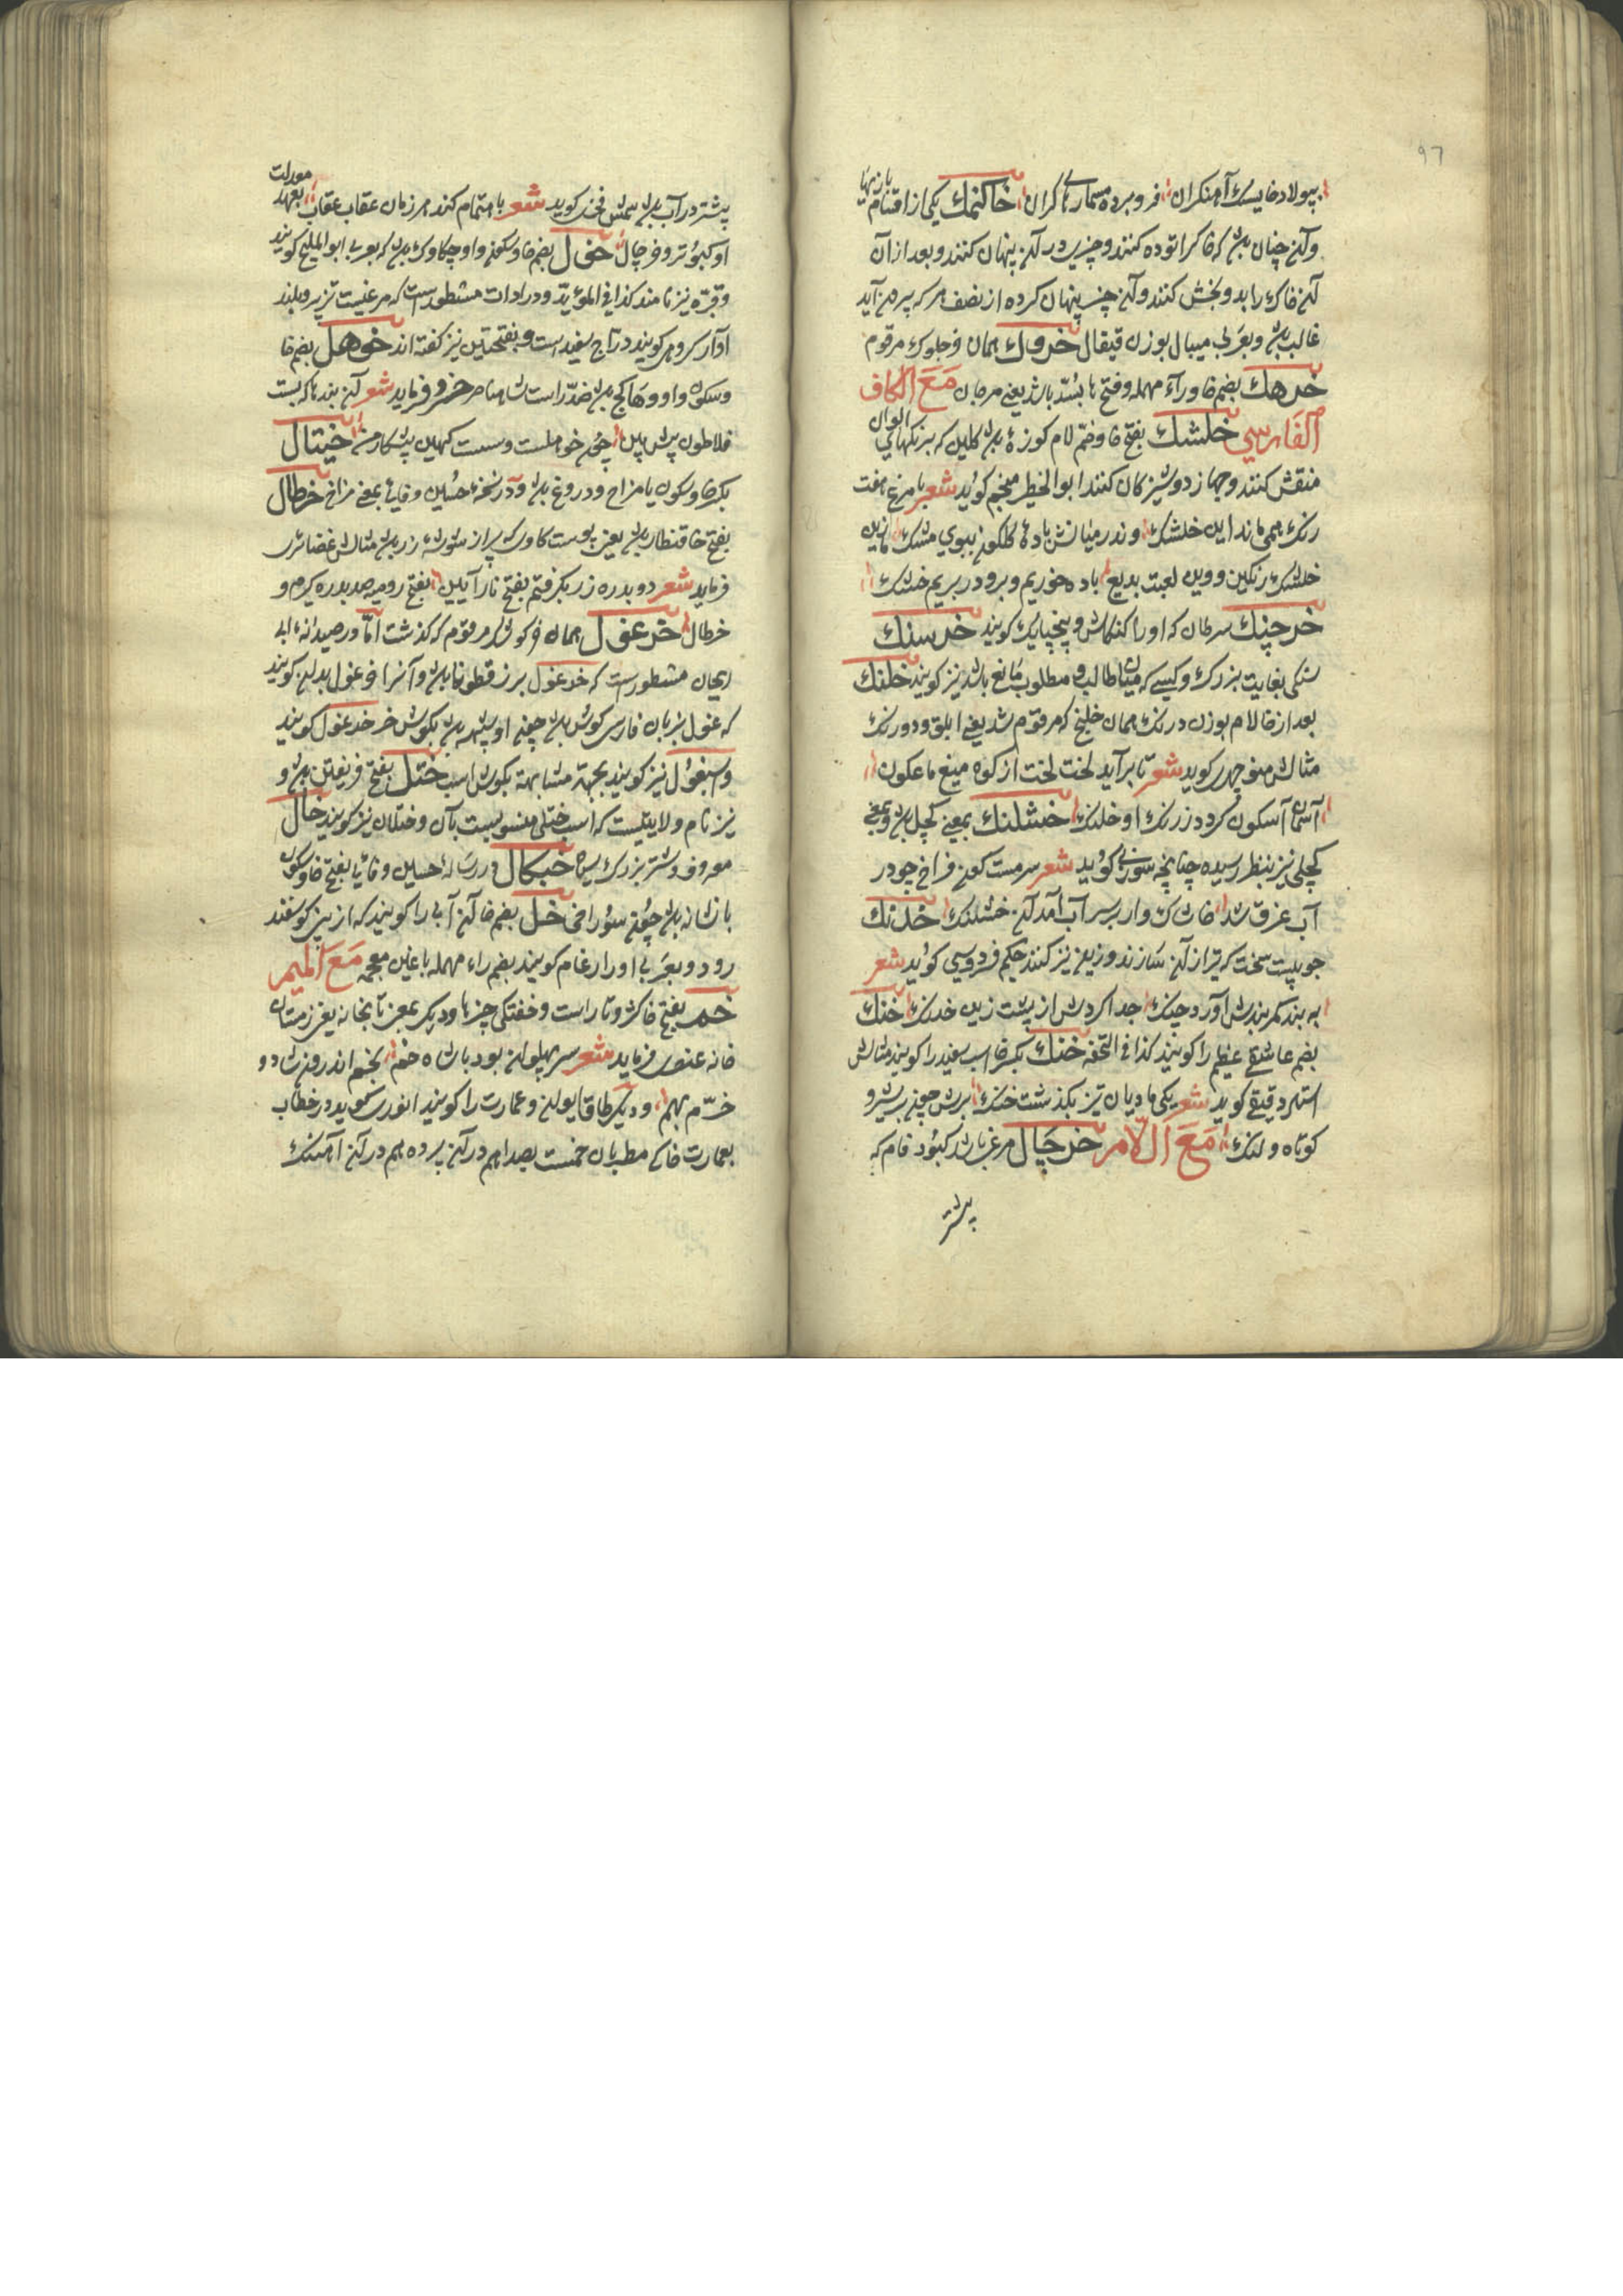 97
بپولاد خایسک آهنکران فرو برده مسمارهای کران خاکنمک یکی از اقسام بازیها
وآن چنان باشد که خاکرا توده کنند و چیزی در آن پنهان کنند و بعد از آن
آن خاک را بدو بخش کنند و آن چیز پنهان کرده از نصف هر که بیرون آید
غالب باشد و بعربی میبال بوزن قیقال خروک همان خجلوک مرقوم
خرهک بضم خا و راء مهمله و فتح ها بسّد باشد یعنی مرجان مَعَ الکاف
الفارسي خلشک بفتح خا و ضم لام کوزهٔ باشد کلین که برنکهای الوان
منقش کنند و جهاز دوشیزکان کنند ابو الخطیر منجم کوید شعر با مرغ هفت
رنک همی ماند این خلشک وندر میانش بادهٔ کلکون ببوی مشک مازین
خلشک رنکین وین لعبت بدیع باده خوریم و برو در بریم خشک
خرچنک سرطان که اورا کنکاش و پنجپایک کویند خرسنک
سنکی بغایت بزرک و کسی که میان طالب و مطلوب مانع باشد نیز کویند خلنک
بعد از خا لام بوزن درنک همان خلنج که مرقوم شد یعنی ابلق و دورنک
مثالش منوچهری کوید شعر تا برآید لخت لخت از کوه میغ ماغکون
آسمان آسکون کردد ز رنک او خلنک خشلنک بمعنی کچل باشد و بمعنی
کچلی نیز بنظر رسیده چنانچه سوزنی کوید شعر سرمست کون فراخ چو در
آب غرق شد خاشاک وار بر سر آب آمد آن خشلنک خدنک
چوبیست سخت که تیر از آن سازند و زین نیز کنند حکیم فردوسی کوید شعر
به بند کمربندش آورد چنک جدا کردش از پشت زین خدنک خنک
بضم عاشقی عظیم را کویند کذا فی التحفه خنک بکسر خا اسب سفید را کویند مثالش
استاد دقیقی کوید شعر یکی مادیان تیز بکذشت خنک برش چون بر شیر و
کوتاه و لنک مَعَ اللّامر خرچال مرغی باشد کبود فام که
پیشتر
پیشتر در آب باشد شمس فخری کوید شعر باهتمام کند مرزبان عقاب عقاب بعهد معدلت
او کبوتر و خرچال خول بضم خا و سکون واو چکاوک باشد که بعربی ابو الملیح کویند
و قبرّه نیز نامند کذا فی المؤیّد و در ادات مشطورست که مرغیست تیز پر و بلند
آواز سروهی کویند درّاج سفید است و بفتحتین نیز کفته اند خوهل بضم خا
و سکون واو و ها کج باشد ضدّ راست شاه ناصر خسرو فرماید شعر آن بند ها که بست
فلاطون پیش بین خوهلست و سست کهین پیشکار من خیتال
بکسر خا و سکون یا مزاح و دروغ باشد و در نسخهٔ حسین وفایی بمعنی مزاح خرطال
بفتح خا قنطار باشد یعنی پوست کاوی پر از شوشهٔ زر باشد مثالش غضائری
فرماید شعر دو بدره زر بکرفتم بفتح نارآیین بفتح رومیه صد بدره کیرم و
خرطال خرغول همان خرکوشک مرقوم که کذشت امّا در صیدانهٔ ابی
ریحان مشطورست که خرغول برز قطونا باشد و آنرا خرغول بدان کویند
که غول بزبان فارسی کوش باشد چون او شبیه باشد بکوش خر خرغول کویند
و اسبغول نیز کویند بجهة مشابهت بکوش اسب ختل بفتح فریفتن باشد و
نیز نام ولایتیست که اسب ختلی منسوبست بآن و ختلان نیز کویند خال
معروف و شتر بزرک سیاه خبکال در رسالهٔ حسین وفایی بفتح خا و سکون
با نشانه باشد چون سوراخی خل بضم خا آن آبی را کویند که از بینی کوسفند
رود و بعربی اورا رغام کویند بضم راء مهمله با غین معجمه مَعَ المیم
خم بفتح خا کژ و ناراست و خفتکی چیزها و دیکر بمعنی تابخانه یعنی زمستان
خانه عنصری فرماید شعر سر پهلوان بود باشاه خم بخم اندرون شاد و
خرّم بهم و دیکر طاق ایوان و عمارت را کویند انوری کوید در خطاب
بعمارت خاک مطربان خمست بصدا هم در آن پرده هم در آن آهنک